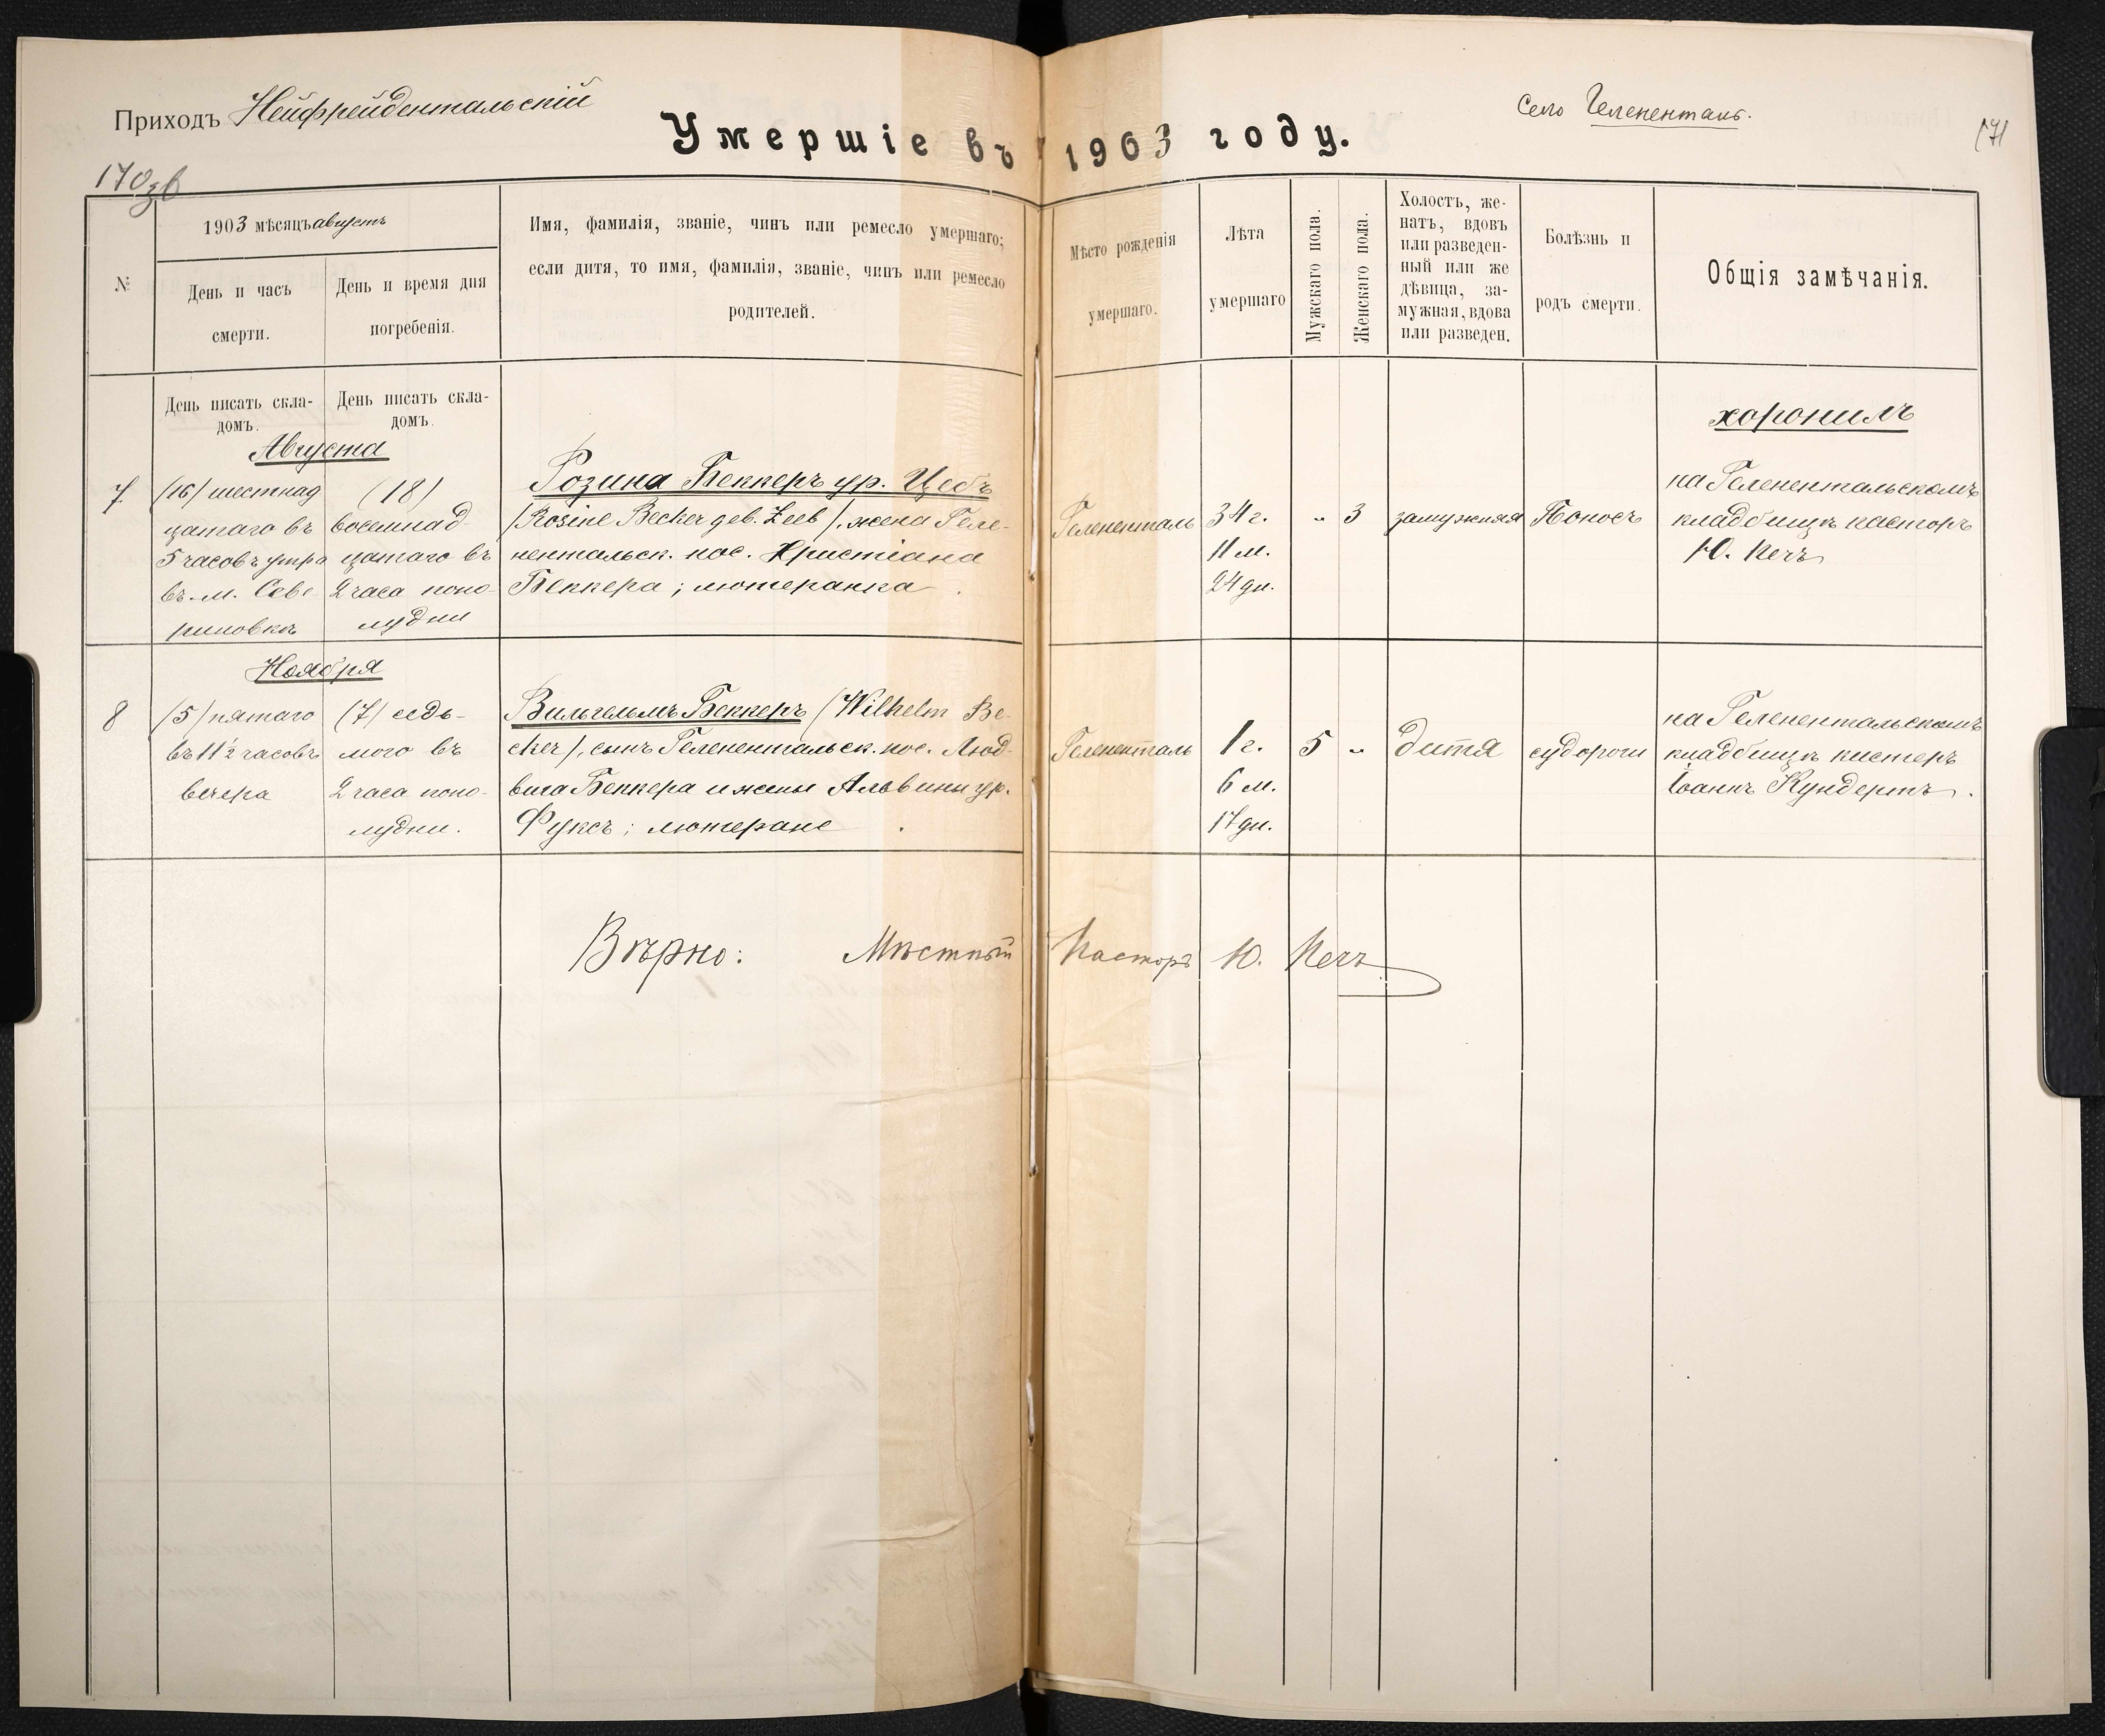 Приходъ Нейфрейдентальскій
Село Гелененталь.
171
Умершіе въ 1903 году.
170зв
№
1903 мѣсяцъ августъ
День и часъ
смерти.
День и время дня
погребенія.
Имя, фамилія, званіе, чинъ или ремесло умершаго;
если дитя, то имя, фамилія, званіе, чинъ или ремесло
родителей.
Мѣсто рожденія
умершаго.
Лѣта
умершаго
Мужскаго пола.
Женскаго пола.
Холостъ, же-
натъ, вдовъ
или разведен-
ный или же
дѣвица, за-
мужная, вдова
или разведен.
Болѣзнь и
родъ смерти.
Общія замѣчанія.
День писать скла-
домъ.
День писать скла-
домъ.
Августа
7
(16) шестнад
цатаго въ
5 часовъ утра
въ м. Севе
риновкѣ
(18)
восемнад
цатаго въ
2 часа попо-
лудни
Розина Беккеръ ур. Цебъ
(Rosine Becker geb. Zeeb), жена Геле-
нентальск. пос. Христіана
Беккера; лютеранка.
Гелененталь
34 г.
11 м.
24 дн.
" 3
замужняя
Поносъ
хоронилъ
на Геленентальскомъ
кладбищѣ пасторъ
Ю. Печъ
Ноября
8
(5) пятаго
въ 11½ часовъ
вечера
(7) седь-
мого въ
2 часа попо-
лудни.
Вильгельмъ Беккеръ (Wilhelm Be-
cker), сынъ Геленентальск. пос. Люд-
вига Беккера и жены Альвины ур.
Фуксъ; лютеране.
Гелененталь
1 г.
6 м.
17 дн.
5 "
дитя
судороги
на Геленентальскомъ
кладбищѣ кистеръ
Іоаннъ Кундертъ.
Вѣрно: Мѣстный Пасторъ Ю. Печъ